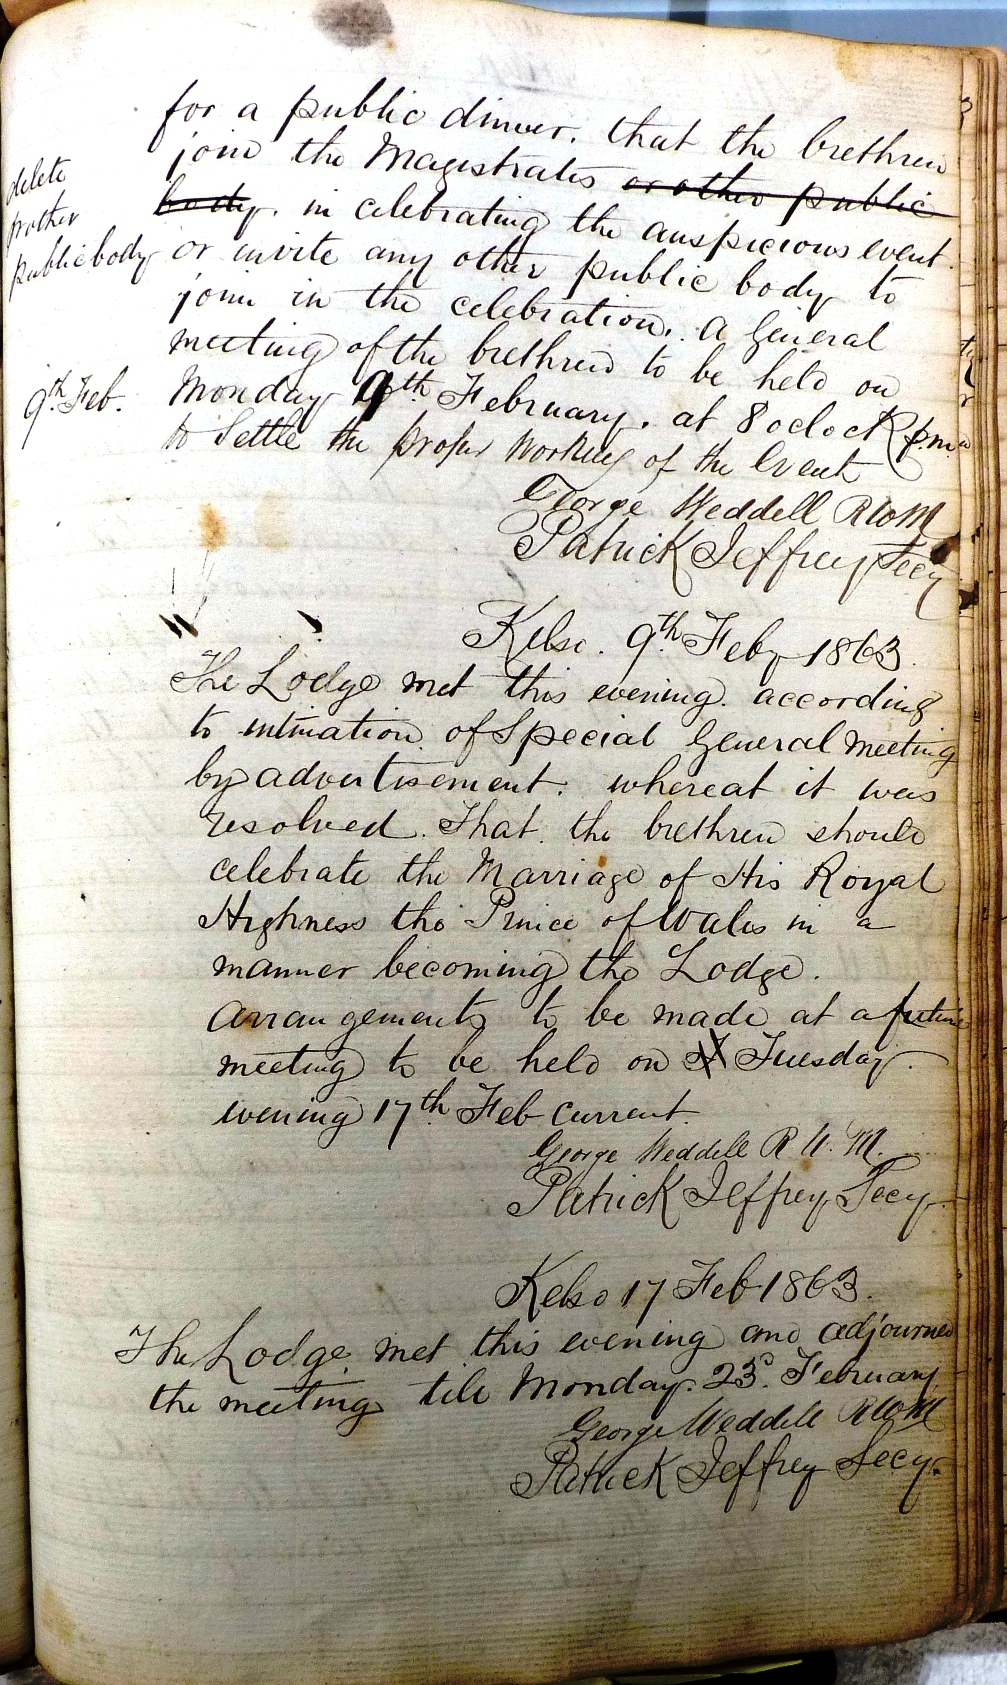 for a public dinner. that the brethren
join the Magistrates or other public
body. in celebrating the auspicious event.
or invite any other public body to
join in the celebration. A General
meeting of the brethren to be held on
Monday 9th February. at 8 oclock p.m.
to Settle the proper working of the Event
George Weddell RWM
Patrick Jeffrey Secy
delete
public body
9th Feb.
Kelso. 9th Feby 1863.
The Lodge met this evening. according
to intimation of Special General Meeting
by advertisement. whereat it was
resolved. That the brethren should
celebrate the Marriage of His Royal
Highness the Prince of Wales in a
manner becoming the Lodge.
Arrangements to be made at a future
meeting to be held on Tuesday.
evening 17th Feb current
George Weddell R.W.M.
Patrick Jeffrey Secy.
Kelso 17 Feb 1863.
The Lodge met this evening and adjourned
the meeting till Monday. 23d. February
George Weddell RWM
Patrick Jeffrey Secy.